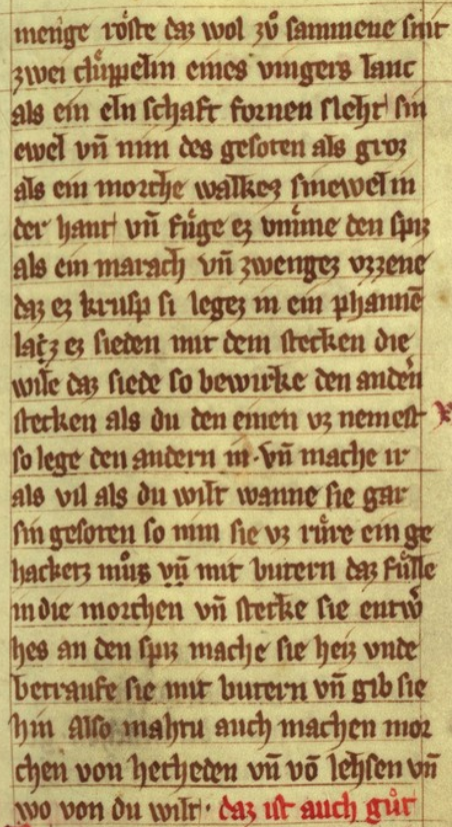 menge röste daz wol zů sammene smit
zwei clüppelin eines vingers lanc
als ein eln schaft fornen sleht sin
ewel vñ nim des gesoten als groz
als ein morche walkez sinewel in
der hant vñ füge ez vmme den spiz
als ein marach vñ zwengez vzzene
daz ez krusp si legez in ein phannē
latz ez sieden mit dem stecken die
wile daz siede so bewirke den andern
stecken als du den einen vz nemest
so lege den andern in · vñ mache ir
als vil als du wilt wanne sie gar
sin gesoten so nim sie vz rüre ein ge
hacketz můs vñ mit butern daz fülle
in die morchen vñ stecke sie entw
hes an den spiz mache sie heiz vnde
betraufe sie mit butern vñ gib sie
hin Also mahtu auch machen mor
chen von hecheden vñ vō lehsen vñ
wo von du wilt · daz ist auch gůt